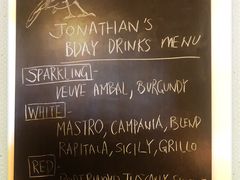 JONATHAN'S
BDAY DRINKS MENU
SPARKLING -
VEUVE AMBAL, BURGUNDY
WHITE -
MASTRO, CAMPANIA, BLEND
RAPITALA, SICILY, GRILLO
RED -